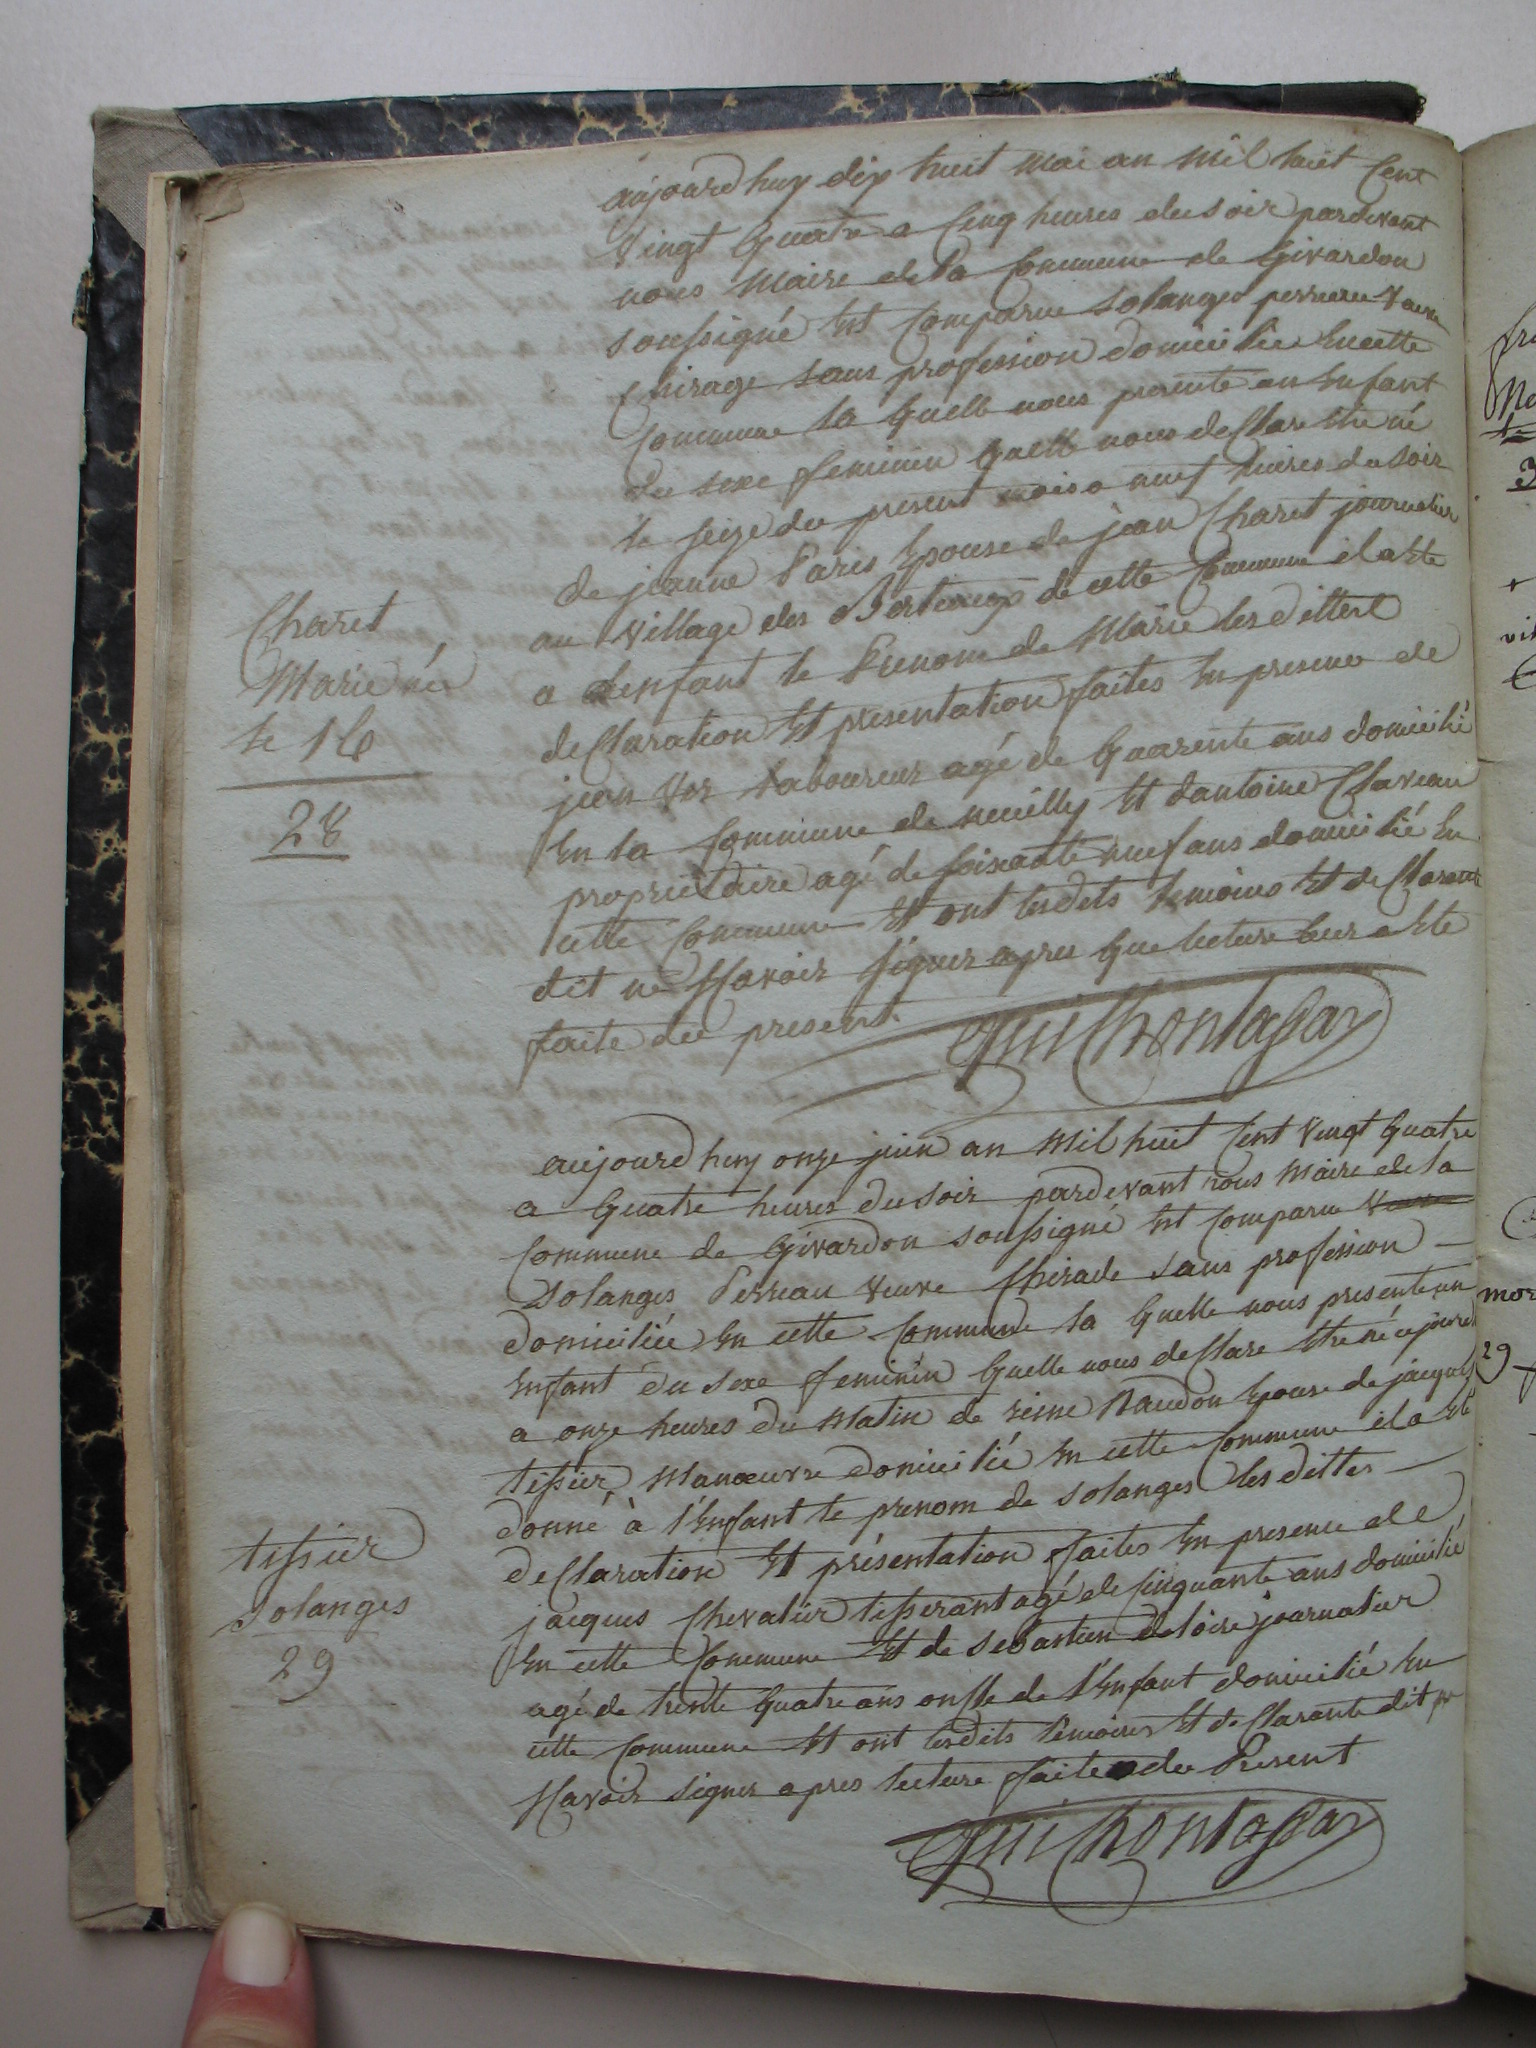 aujourdhuy dix huit Mai an mil huit Cent
vingt Quatre a Cinq heures du soir pardevant
nous Maire de la Commune de Givardon
soussigné Est Comparue solanges perreau veuve
Chirage sans profession domiciliée En cette
Commune la Quelle nous presente un Enfant
du sexe feminin Quelle nous declare Etre né
le seize du present mois a neuf heures du soir
de jeanne Paris Epouse de jean Charet journalier
au village des de cette Commune il a Ete
a lenfant le Prenom de Marie les dittes
declaration Et presentation faites En presence de
jean laboureur agé de Quarente ans domicilié
En la Commune de neuilly Et dantoine Claveau
proprietaire agé de soixante neuf ans domicilié En
cette Commune Et ont lesdits temoins Et declarante
dit ne scavoir signer apres Que lecture leur a Ete
faite du present.
Charet
Marie née
le 16
28
aujourdhuy onze juin an Mil huit Cent vingt Quatre
a Quatre heures du soir pardevant nous Maire de la
Commune de Givardon soussigné Est Comparue veuve
Solanges Perreau veuve Chirade sans profession
domiciliée En cette Commune la Quelle nous presente un
Enfant du sexe feminin Quelle nous declare Etre né cejourd
a onze heures du Matin de reine Naudon Epouse de jacques
tissier Manœuvre domicilié En cette Commune il a Eté
donné à l'Enfant le prenom de solanges les dittes
declaration Et présentation faites En presence de
jacques Chevalier tisserant agé de Cinquante ans domicilié
En cette Commune Et de sebastien deloire journalier
agé de trente Quatre ans oncle de l'Enfant domicilié En
cette Commune Et ont lesdits temoins Et declarante dit ne
scavoir signer apres lecture faite du Present
tissier
Solanges
29
mor
29